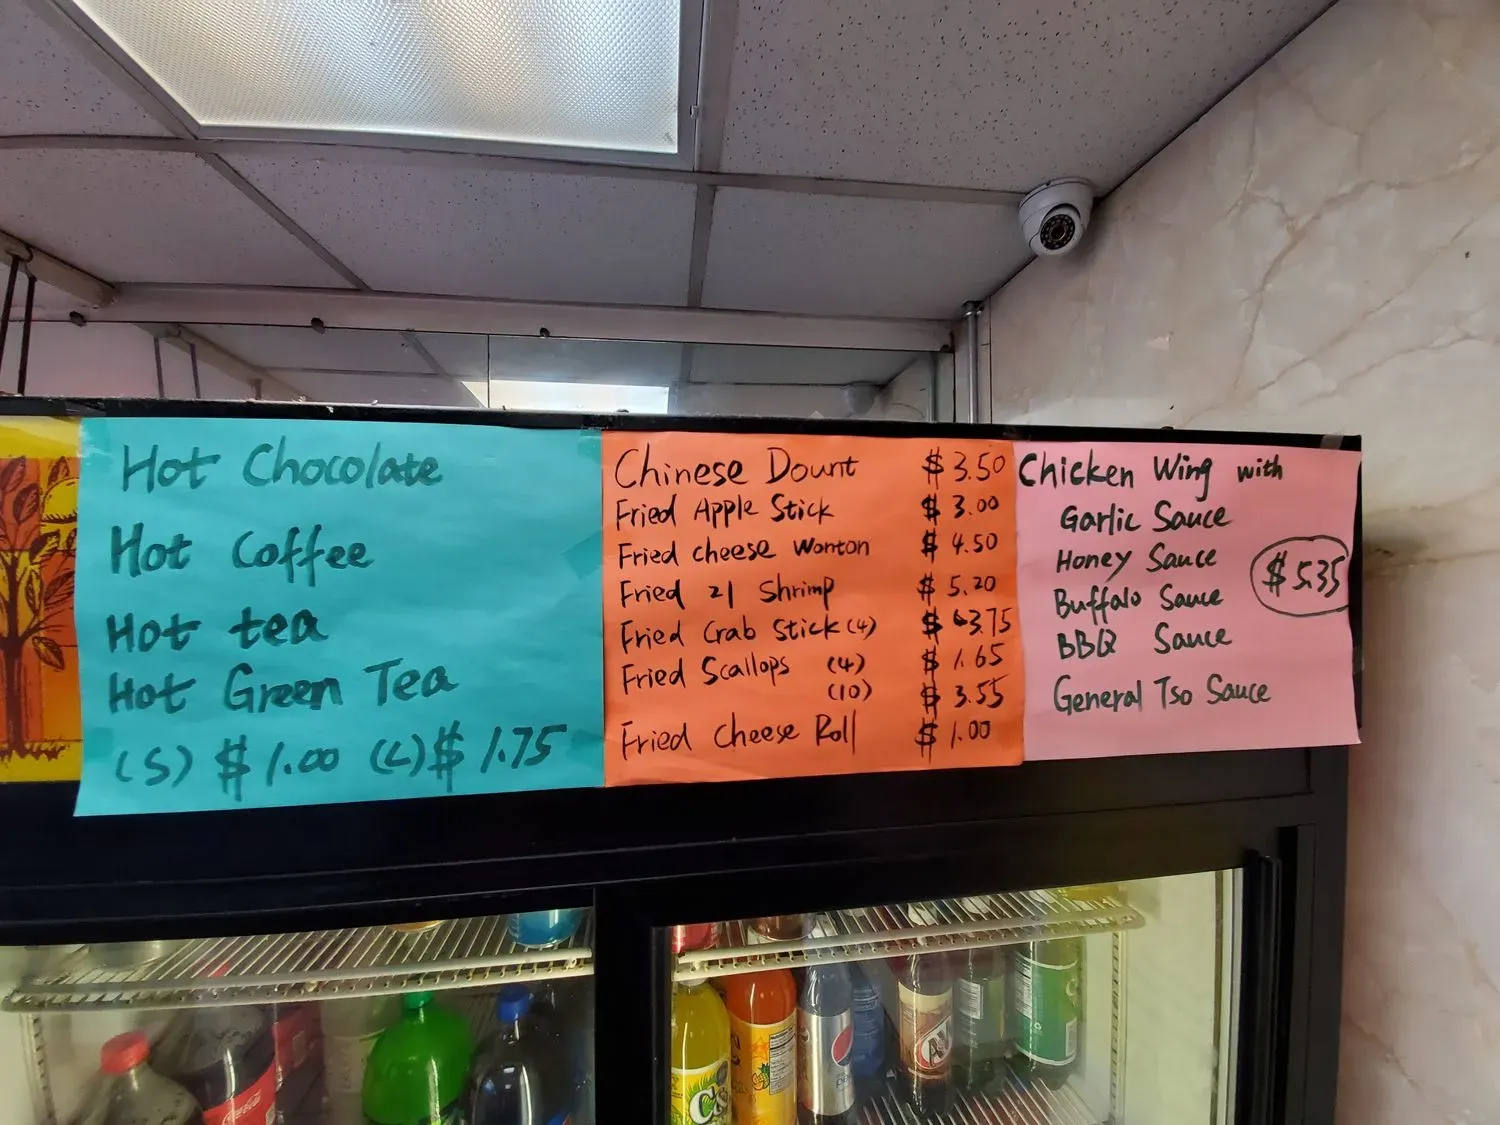 Hot Chocolate
Hot Coffee
Hot tea
Hot Green Tea
(S) $1.00 (L) $1.75
Chinese Dount $3.50
Fried Apple Stick $3.00
Fried cheese Wonton $4.50
Fried 21 Shrimp $5.20
Fried Crab Stick (4) $3.75
Fried Scallops (4) $1.65
(10) $3.55
Fried Cheese Roll $1.00
Chicken Wing with
Garlic Sauce
Honey Sauce
$5.35
Buffalo Sauce
BBQ Sauce
General Tso Sauce
Coca-Cola
pepsi
A&W